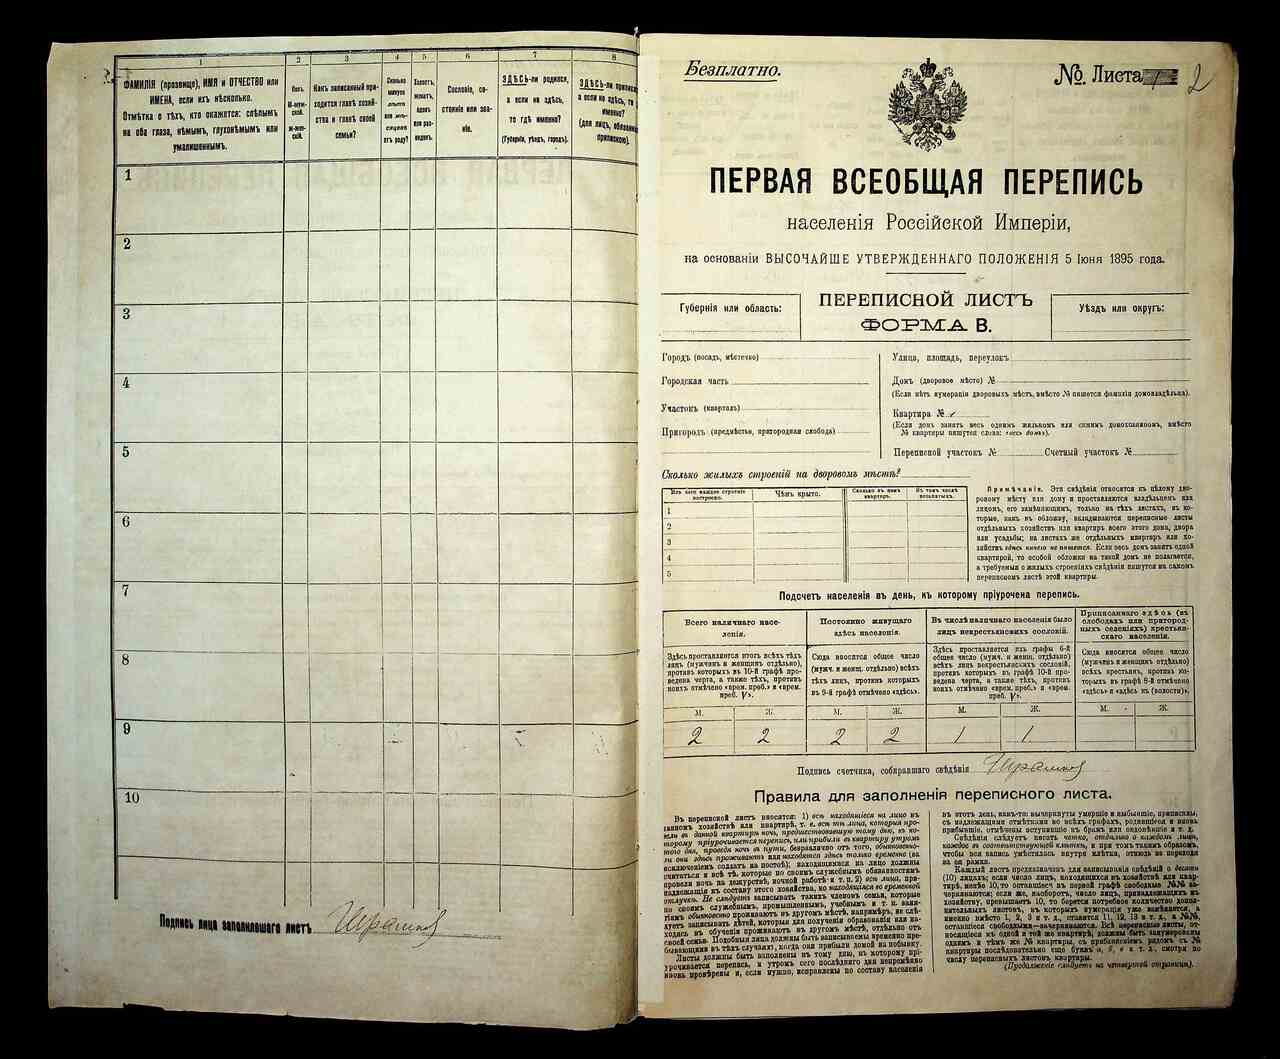 1
2
3
4
5
6
7
8
ФАМИЛІЯ (прозвище), ИМЯ и ОТЧЕСТВО или
ИМЕНА, если ихъ нѣсколько.
Отмѣтка о тѣхъ, кто окажется: слѣпымъ
на оба глаза, нѣмымъ, глухонѣмымъ или
умалишеннымъ.
Полъ.
М-муж-
ской.
Ж-жен-
скій.
Какъ записанный при-
ходится главѣ хозяй-
ства и главѣ своей
семьи?
Сколько
минуло
лѣтъ
или мѣ-
сяцевъ
отъ роду?
Холостъ,
женатъ,
вдовъ
или раз-
веденъ.
Сословіе, со-
стояніе или зва-
ніе.
ЗДѢСЬ-ли родился,
а если не здѣсь,
то гдѣ именно?
(Губернія, уѣздъ, городъ).
ЗДѢСЬ-ли приписанъ,
а если не здѣсь, то гдѣ
именно?
(для лицъ, обязанныхъ
припискою).
1
2
3
4
5
6
7
8
9
10
Подпись лица заполнявшаго листъ
Безплатно.
№ Листа 1 2
ПЕРВАЯ ВСЕОБЩАЯ ПЕРЕПИСЬ
населенія Россійской Имперіи,
на основаніи ВЫСОЧАЙШЕ УТВЕРЖДЕННАГО ПОЛОЖЕНІЯ 5 Іюня 1895 года.
Губернія или область:
ПЕРЕПИСНОЙ ЛИСТЪ
ФОРМА В.
Уѣздъ или округъ:
Городъ (посадъ, мѣстечко)
Городская часть
Участокъ (кварталъ)
Пригородъ (предмѣстье, пригородная слобода)
Улица, площадь, переулокъ
Домъ (дворовое мѣсто) №
(Если нѣтъ нумераціи дворовыхъ мѣстъ, вмѣсто № пишется фамилія домовладѣльца).
Квартира №
(Если домъ занятъ весь однимъ жильцомъ или самимъ домохозяиномъ, вмѣсто
№ квартиры пишутся слова: «весь домъ»).
Переписной участокъ № Счетный участокъ №
Сколько жилыхъ строеній на дворовомъ мѣстѣ?
Изъ чего каждое строеніе
построено.
Чѣмъ крыто.
Сколько въ немъ
квартиръ.
Въ томъ числѣ
незанятыхъ.
1
2
3
4
5
Примѣчаніе. Эти свѣдѣнія относятся къ цѣлому дво-
ровому мѣсту или дому и проставляются владѣльцемъ или
лицомъ, его замѣняющимъ, только на тѣхъ листахъ, въ ко-
торые, какъ въ обложку, вкладываются переписные листы
отдѣльныхъ хозяйствъ или квартиръ всего этого дома, двора
или усадьбы; на листахъ же отдѣльныхъ квартиръ или хо-
зяйствъ здѣсь ничего не пишется. Если весь домъ занятъ одной
квартирой, то особой обложки на такой домъ не полагается,
а требуемыя о жилыхъ строеніяхъ свѣдѣнія пишутся на самомъ
переписномъ листѣ этой квартиры.
Подсчетъ населенія въ день, къ которому пріурочена перепись.
Всего наличнаго насе-
ленія.
Постоянно живущаго
здѣсь населенія.
Въ числѣ наличнаго населенія было
лицъ некрестьянскихъ сословій.
Приписаннаго здѣсь (въ
слободахъ или пригород-
ныхъ селеніяхъ) крестьян-
скаго населенія.
Здѣсь проставляется итогъ всѣхъ тѣхъ
лицъ (мужчинъ и женщинъ отдѣльно),
противъ которыхъ въ 10-й графѣ про-
ведена черта, а также тѣхъ, противъ
коихъ отмѣчено «врем. преб.» и «врем.
преб. V».
Сюда вносится общее число
(мужч. и женщ. отдѣльно) всѣхъ
тѣхъ лицъ, противъ которыхъ
въ 9-й графѣ отмѣчено «здѣсь».
Здѣсь проставляется изъ графы 6-й
общее число (мужч. и женщ. отдѣльно)
всѣхъ лицъ некрестьянскихъ сословій,
противъ которыхъ въ графѣ 10-й про-
ведена черта, а также тѣхъ, противъ
коихъ отмѣчено «врем. преб.» и «врем.
преб. V».
Сюда вносится общее число
(мужчинъ и женщинъ отдѣльно)
всѣхъ крестьянъ, противъ ко-
торыхъ въ графѣ 8-й отмѣчено
«здѣсь» и «здѣсь къ (волости)».
М. Ж. М. Ж. М. Ж. М. Ж.
2 2 2 2 1 1
Подпись счетчика, собиравшаго свѣдѣнія
Правила для заполненія переписного листа.
Въ переписной листъ вносятся: 1) всѣ находящіеся на лицо въ
данномъ хозяйствѣ или квартирѣ, т. е. всѣ тѣ лица, которыя про-
вели въ данной квартирѣ ночь, предшествовавшую тому дню, къ ко-
торому пріурочивается перепись, или прибыли въ квартиру утромъ
этого дня, проведя ночь въ пути, безразлично отъ того, обыкновенно-
ли они здѣсь проживаютъ или находятся здѣсь только временно (за
исключеніемъ солдатъ на постоѣ); находящимися на лицо должны
считаться и всѣ тѣ, которые по своимъ служебнымъ обязанностямъ
провели ночь на дежурствѣ, ночной работѣ и т. п. 2) всѣ лица, при-
надлежащія къ составу этого хозяйства, но находящіяся во временной
отлучкѣ. Не слѣдуетъ записывать такихъ членовъ семьи, которые
по своимъ служебнымъ, промышленнымъ, учебнымъ и т. п. заня-
тіямъ обыкновенно проживаютъ въ другомъ мѣстѣ, напримѣръ, не слѣ-
дуетъ записывать дѣтей, которыя для полученія образованія или на-
ходясь въ обученіи проживаютъ въ другомъ мѣстѣ, отдѣльно отъ
своей семьи. Подобныя лица должны быть записываемы временно пре-
бывающими въ тѣхъ случаяхъ, когда они прибыли домой на побывку.
Листы должны быть заполнены къ тому дню, къ которому прі-
урочивается перепись, и утромъ сего послѣдняго дня непремѣнно
вновь провѣрены и, если нужно, исправлены по составу населенія
въ этотъ день, какъ-то: вычеркнуты умершіе и выбывшіе, приписаны,
съ надлежащими отмѣтками во всѣхъ графахъ, родившіеся и вновь
прибывшіе, отмѣчены вступившіе въ бракъ или овдовѣвшіе и т. д.
Свѣдѣнія слѣдуетъ писать четко, отдѣльно о каждомъ лицѣ,
каждое въ соотвѣтствующей клѣткѣ, и при томъ такимъ образомъ,
чтобы вся запись умѣстилась внутри клѣтки, отнюдь не переходя
за ея рамки.
Каждый листъ предназначенъ для записыванія свѣдѣній о десяти
(10) лицахъ; если число лицъ, находящихся въ хозяйствѣ или квар-
тирѣ, менѣе 10, то оставшіеся въ первой графѣ свободные №№ за-
черкиваются; если же, наоборотъ, число лицъ, принадлежащихъ къ
хозяйству, превышаетъ 10, то берется потребное количество допол-
нительныхъ листовъ, въ которыхъ нумерація уже измѣняется, а
именно вмѣсто 1, 2, 3 и т. д., ставится 11, 12, 13 и т. д., а №№,
оставшіеся свободными—зачеркиваются. Всѣ переписные листы, от-
носящіеся къ одной и той же квартирѣ, должны быть занумерованы
однимъ и тѣмъ же № квартиры, съ прибавленіемъ рядомъ съ №
квартиры послѣдовательно еще буквъ а, б, в и т. д. смотря по
числу переписныхъ листовъ квартиры.
(Продолженіе слѣдуетъ на четвертой страницѣ).